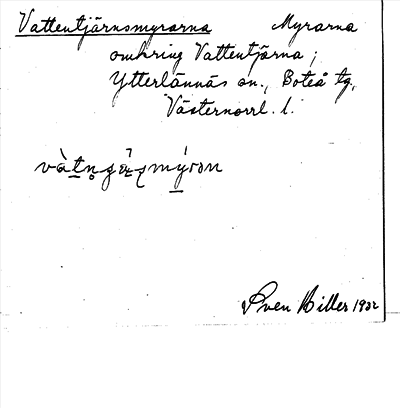 Vattentjärnsmyrarna Myrarna
omkring Vattentjärna;
Ytterlännäs sn., Boteå tg,
Västernorrl. l.
Sven Hiller 1932